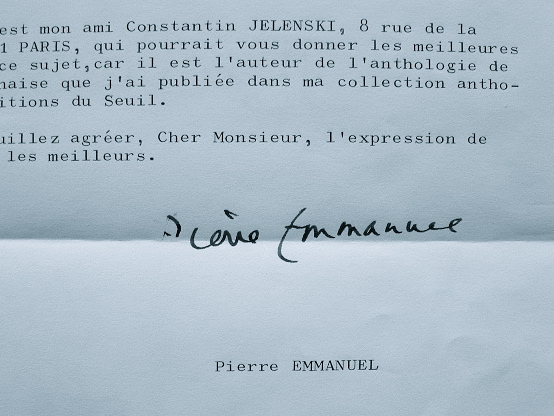 est mon ami Constantin JELENSKI, 8 rue de la
1 PARIS, qui pourrait vous donner les meilleures
ce sujet,car il est l'auteur de l'anthologie de
naise que j'ai publiée dans ma collection antho-
itions du Seuil.
uillez agréer, Cher Monsieur, l'expression de
les meilleurs.
Pierre Emmanuel
Pierre EMMANUEL